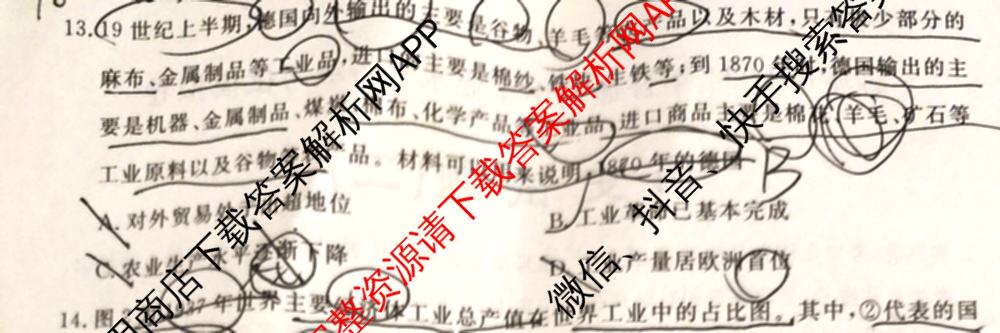 13.19世纪上半期,德国向外输出的主要是谷物、羊毛 品以及木材,只 少部分的
麻布、金属制品等工业品,进 主要是棉纱、 生铁等;到1870年 ,德国输出的主
要是机器、金属制品、煤 布、化学产品 业品,进口商品主要是棉花、羊毛、矿石等
工业原料以及谷物 品。材料可以用来说明,1870年的德国
B
A.对外贸易处 超地位
B.工业革命已基本完成
C.农业生 水平逐渐下降
D. 产量居欧洲首位
14.图 37年世界主要经济体工业总产值在世界工业中的占比图。其中,②代表的国
用商店下载答案解析网APP
整资源请下载答案解析网APP
微信、抖音、快手搜索答案